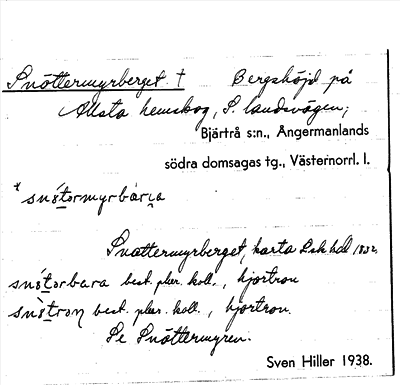 Snöttermyrberget † Bergshöjd på
Allsta hemskog, S. landsvägen;
Bjärtrå s:n., Ångermanlands
södra domsagas tg., Västernorrl. l.
snò̀tormyrbár̨a
Snottermyrberget, karta Lsk hdl 1832.
snò̀torbara best. plur. koll., hjortron
snò̀tron best. plur. koll., hjortron.
Se Snöttermyren.
Sven Hiller 1938.